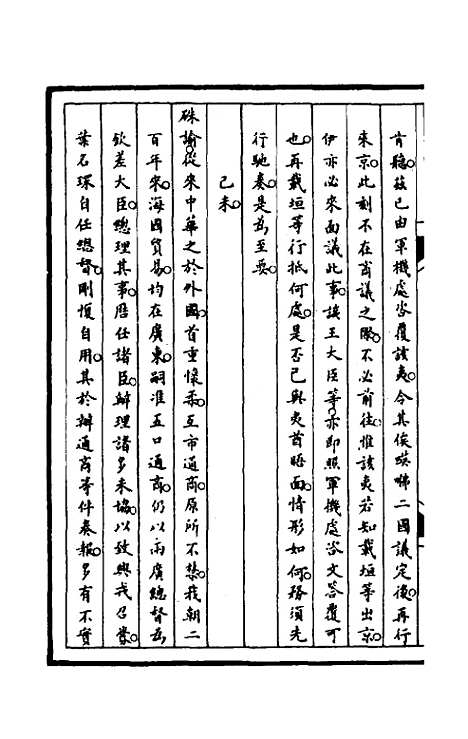 肯聽。茲已由軍機處咨覆該夷。令其俟暎咈二國議定後。再行
來京。此刻不在商議之際。不必前往。惟該夷若知載垣等出京。
伊亦必來面議此事。該王大臣等。亦即照軍機處咨文答覆可
也。再載垣等行抵何處。是否已與夷酋晤面。情形如何。務須先
行馳奏。是爲至要。
己未
硃諭。從來中華之於外國。首重懷柔。互市通商。原所不禁。我朝二
百年來。海國貿易。均在廣東。嗣准五口通商。仍以兩廣總督爲
欽差大臣。總理其事。歷任諸臣。辦理諸多未協。以致興戎召釁。
葉名琛自任總督。剛愎自用。其於辦通商等件奏報。多有不實